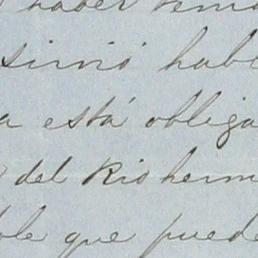 haber
sirvió hab
a está obliga
del Rio herm
ble que puede